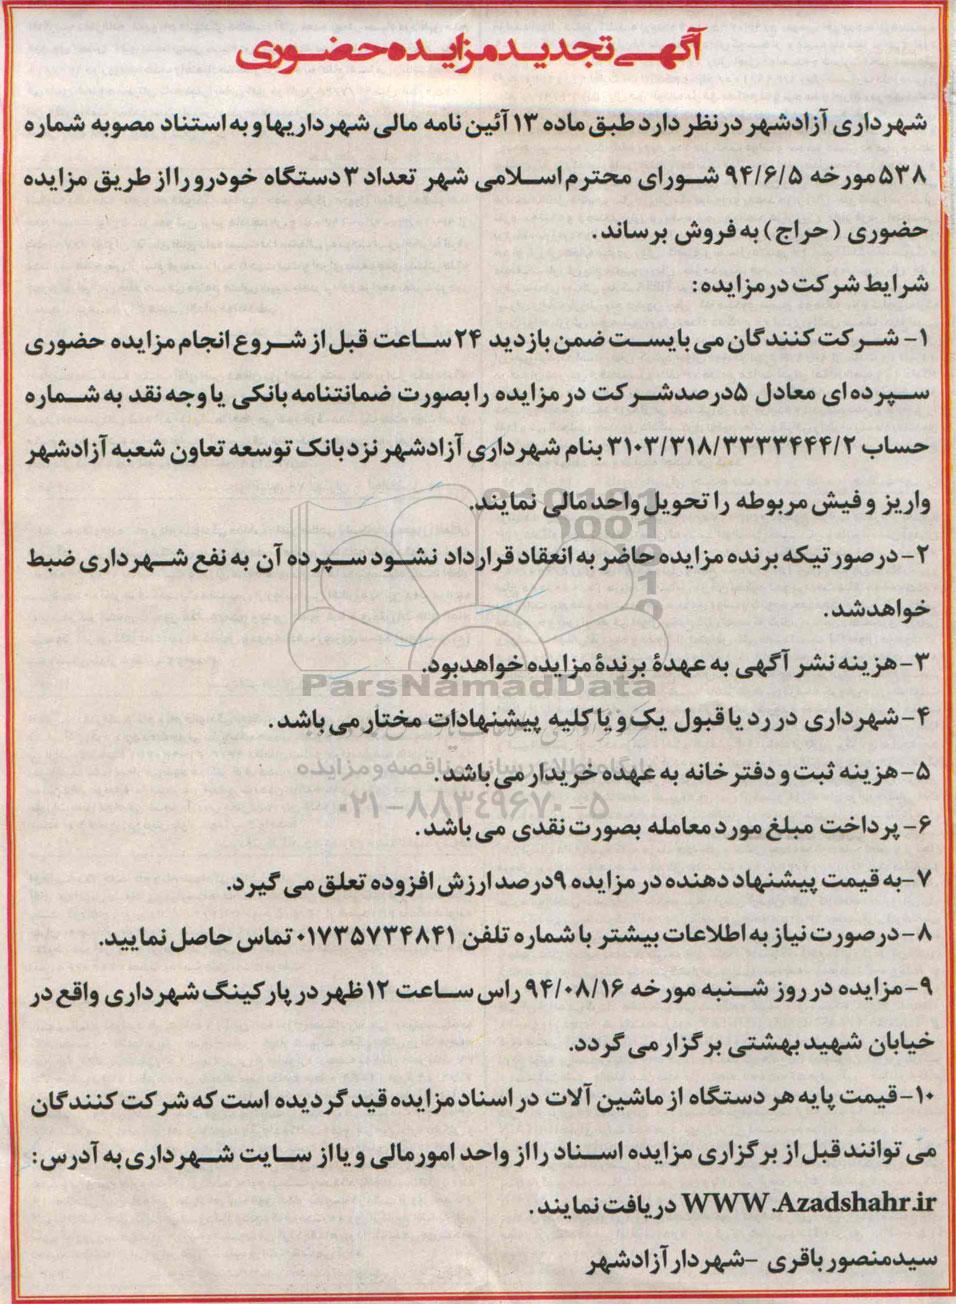 آگهی تجدید مزایده حضوری
شهرداری آزادشهر درنظر دارد طبق ماده ۱۳ آئین نامه مالی شهرداریها و به استناد مصوبه شماره
۵۳۸ مورخه ۹۴/۶/۵ شورای محترم اسلامی شهر تعداد ۳ دستگاه خودرو را از طریق مزایده
حضوری (حراج) به فروش برساند.
شرایط شرکت در مزایده:
۱- شرکت کنندگان می بایست ضمن بازدید ۲۴ ساعت قبل از شروع انجام مزایده حضوری
سپرده ای معادل ۵ درصد شرکت در مزایده را بصورت ضمانتنامه بانکی یا وجه نقد به شماره
حساب ۳۱۰۳/۳۱۸/۳۳۳۳۴۴۴/۲ بنام شهرداری آزادشهر نزد بانک توسعه تعاون شعبه آزادشهر
واریز و فیش مربوطه را تحویل واحد مالی نمایند.
۲- در صورتیکه برنده مزایده حاضر به انعقاد قرارداد نشود سپرده آن به نفع شهرداری ضبط
خواهد شد.
۳- هزینه نشر آگهی به عهدهٔ برندهٔ مزایده خواهد بود.
ParsNamadData
۴- شهرداری در رد یا قبول یک و یا کلیه پیشنهادات مختار می باشد.
پایگاه اطلاع رسانی مناقصه و مزایده
۵- هزینه ثبت و دفتر خانه به عهده خریدار می باشد.
۰۲۱-۸۸۳۴۹۶۷۰-۵
۶- پرداخت مبلغ مورد معامله بصورت نقدی می باشد.
۷- به قیمت پیشنهاد دهنده در مزایده ۹ درصد ارزش افزوده تعلق می گیرد.
۸- در صورت نیاز به اطلاعات بیشتر با شماره تلفن ۰۱۷۳۵۷۳۴۸۴۱ تماس حاصل نمایید.
۹- مزایده در روز شنبه مورخه ۹۴/۰۸/۱۶ راس ساعت ۱۲ ظهر در پارکینگ شهرداری واقع در
خیابان شهید بهشتی برگزار می گردد.
۱۰- قیمت پایه هر دستگاه از ماشین آلات در اسناد مزایده قید گردیده است که شرکت کنندگان
می توانند قبل از برگزاری مزایده اسناد را از واحد امور مالی و یا از سایت شهرداری به آدرس:
WWW.Azadshahr.ir دریافت نمایند.
سید منصور باقری - شهردار آزادشهر